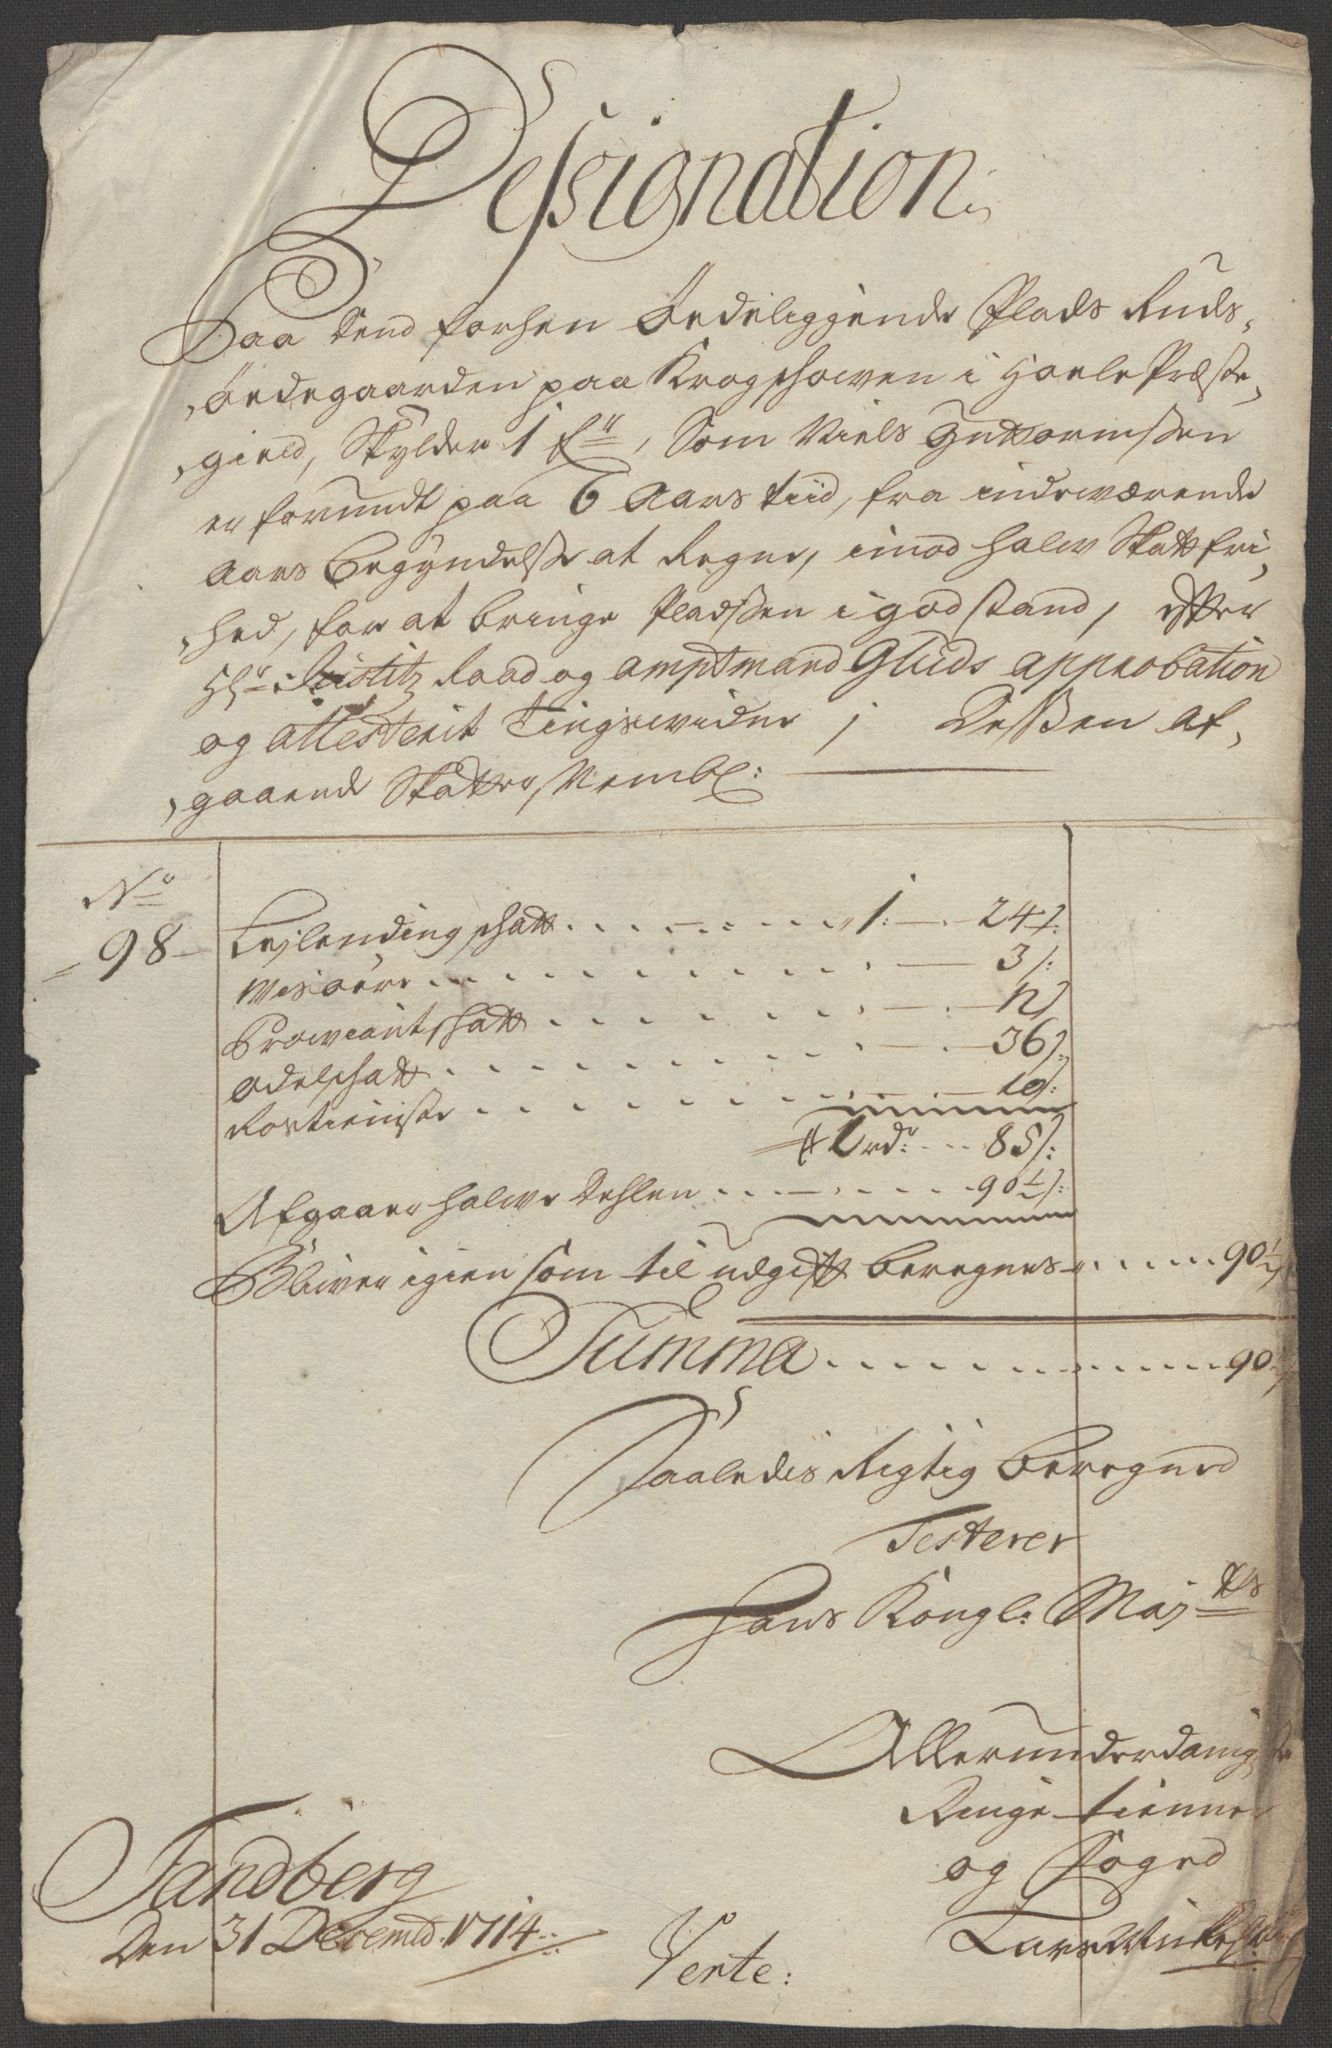 Designation
Paa dend forhen Ødeliggende Plads Ruds-
Ødegaarden paa Krogschowen i Hoele Præste-
gield, Skylder 1 fr, Som Niels Guttormsen
er forundt paa 6 Aars tiid, fra indeværende
Aars Begyndelse at Regne, imod halw Skattfri-
hed, for at bringe Pladsen i god stand, efter
Hr: Justitz Raad og amptmand Gluds approbation
og attesterit Tingswidne, Dessen af-
gaaende Skatter, Nembl:
No
98
Leylending skatt 1 - 24 s:
Wisøere 3 s:
Prowiant skatt 12 s
Odelskatt 36 s:
Rostieniste 10 s:
1 rdr: 85 s:
Afgaaer halwe Dehlen 90½ s:
Bliver igien som til udgift beregnes 90½
Summa 90½
Saaledis Rigtig beregned
Testerer
Hans Kongl: Majts
Allerunderdanigste
Ringe tienner
og Foged
Lars
Sandberg
Den 31 Decembr. 1714
Verte: